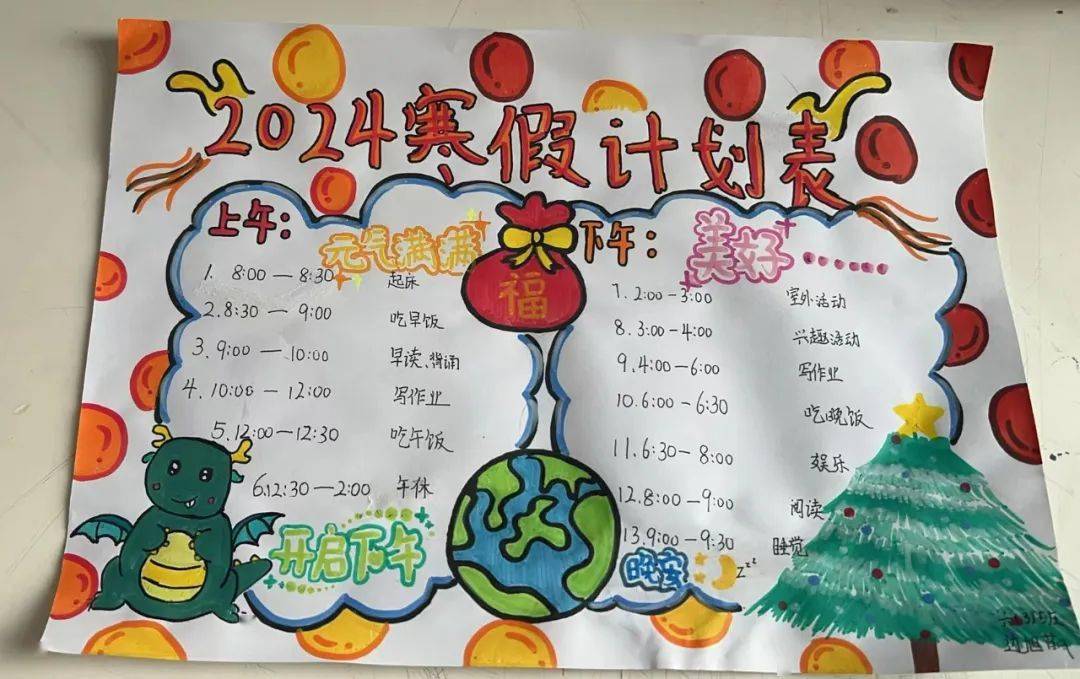 2024寒假计划表
上午:
元气满满
1. 8:00—8:30 起床
2. 8:30—9:00 吃早饭
3. 9:00—10:00 早读、背诵
4. 10:00—12:00 写作业
5. 12:00—12:30 吃午饭
6. 12:30—2:00 午休
开启下午
福
下午:
美好······
7. 2:00-3:00 室外活动
8. 3:00-4:00 兴趣活动
9. 4:00-6:00 写作业
10. 6:00-6:30 吃晚饭
11. 6:30-8:00 娱乐
12. 8:00-9:00 阅读
13. 9:00-9:30 睡觉
晚安 zzz